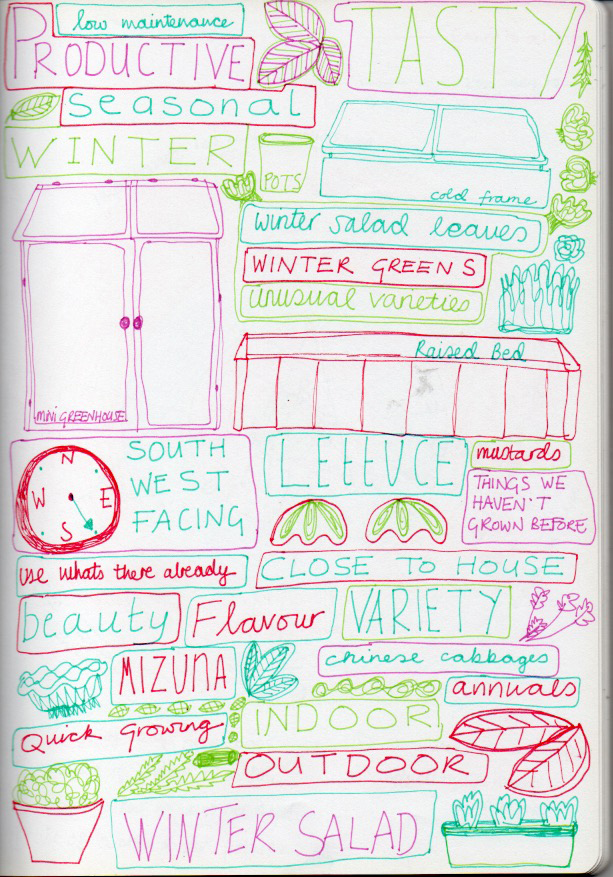 low maintenance
PRODUCTIVE
TASTY
Seasonal
WINTER
POTS
cold frame
winter salad leaves
WINTER GREENS
unusual varieties
Raised Bed
mini GREENHOUSE
N
W E
S
SOUTH
WEST
FACING
LETTUCE
mustards
THINGS WE
HAVEN'T
GROWN BEFORE
use whats there already
CLOSE TO HOUSE
beauty
Flavour
VARIETY
MIZUNA
chinese cabbages
annuals
Quick Growing
INDOOR
OUTDOOR
WINTER SALAD